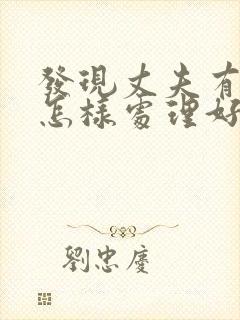 發現丈夫有
怎樣處理好
劉忠慶